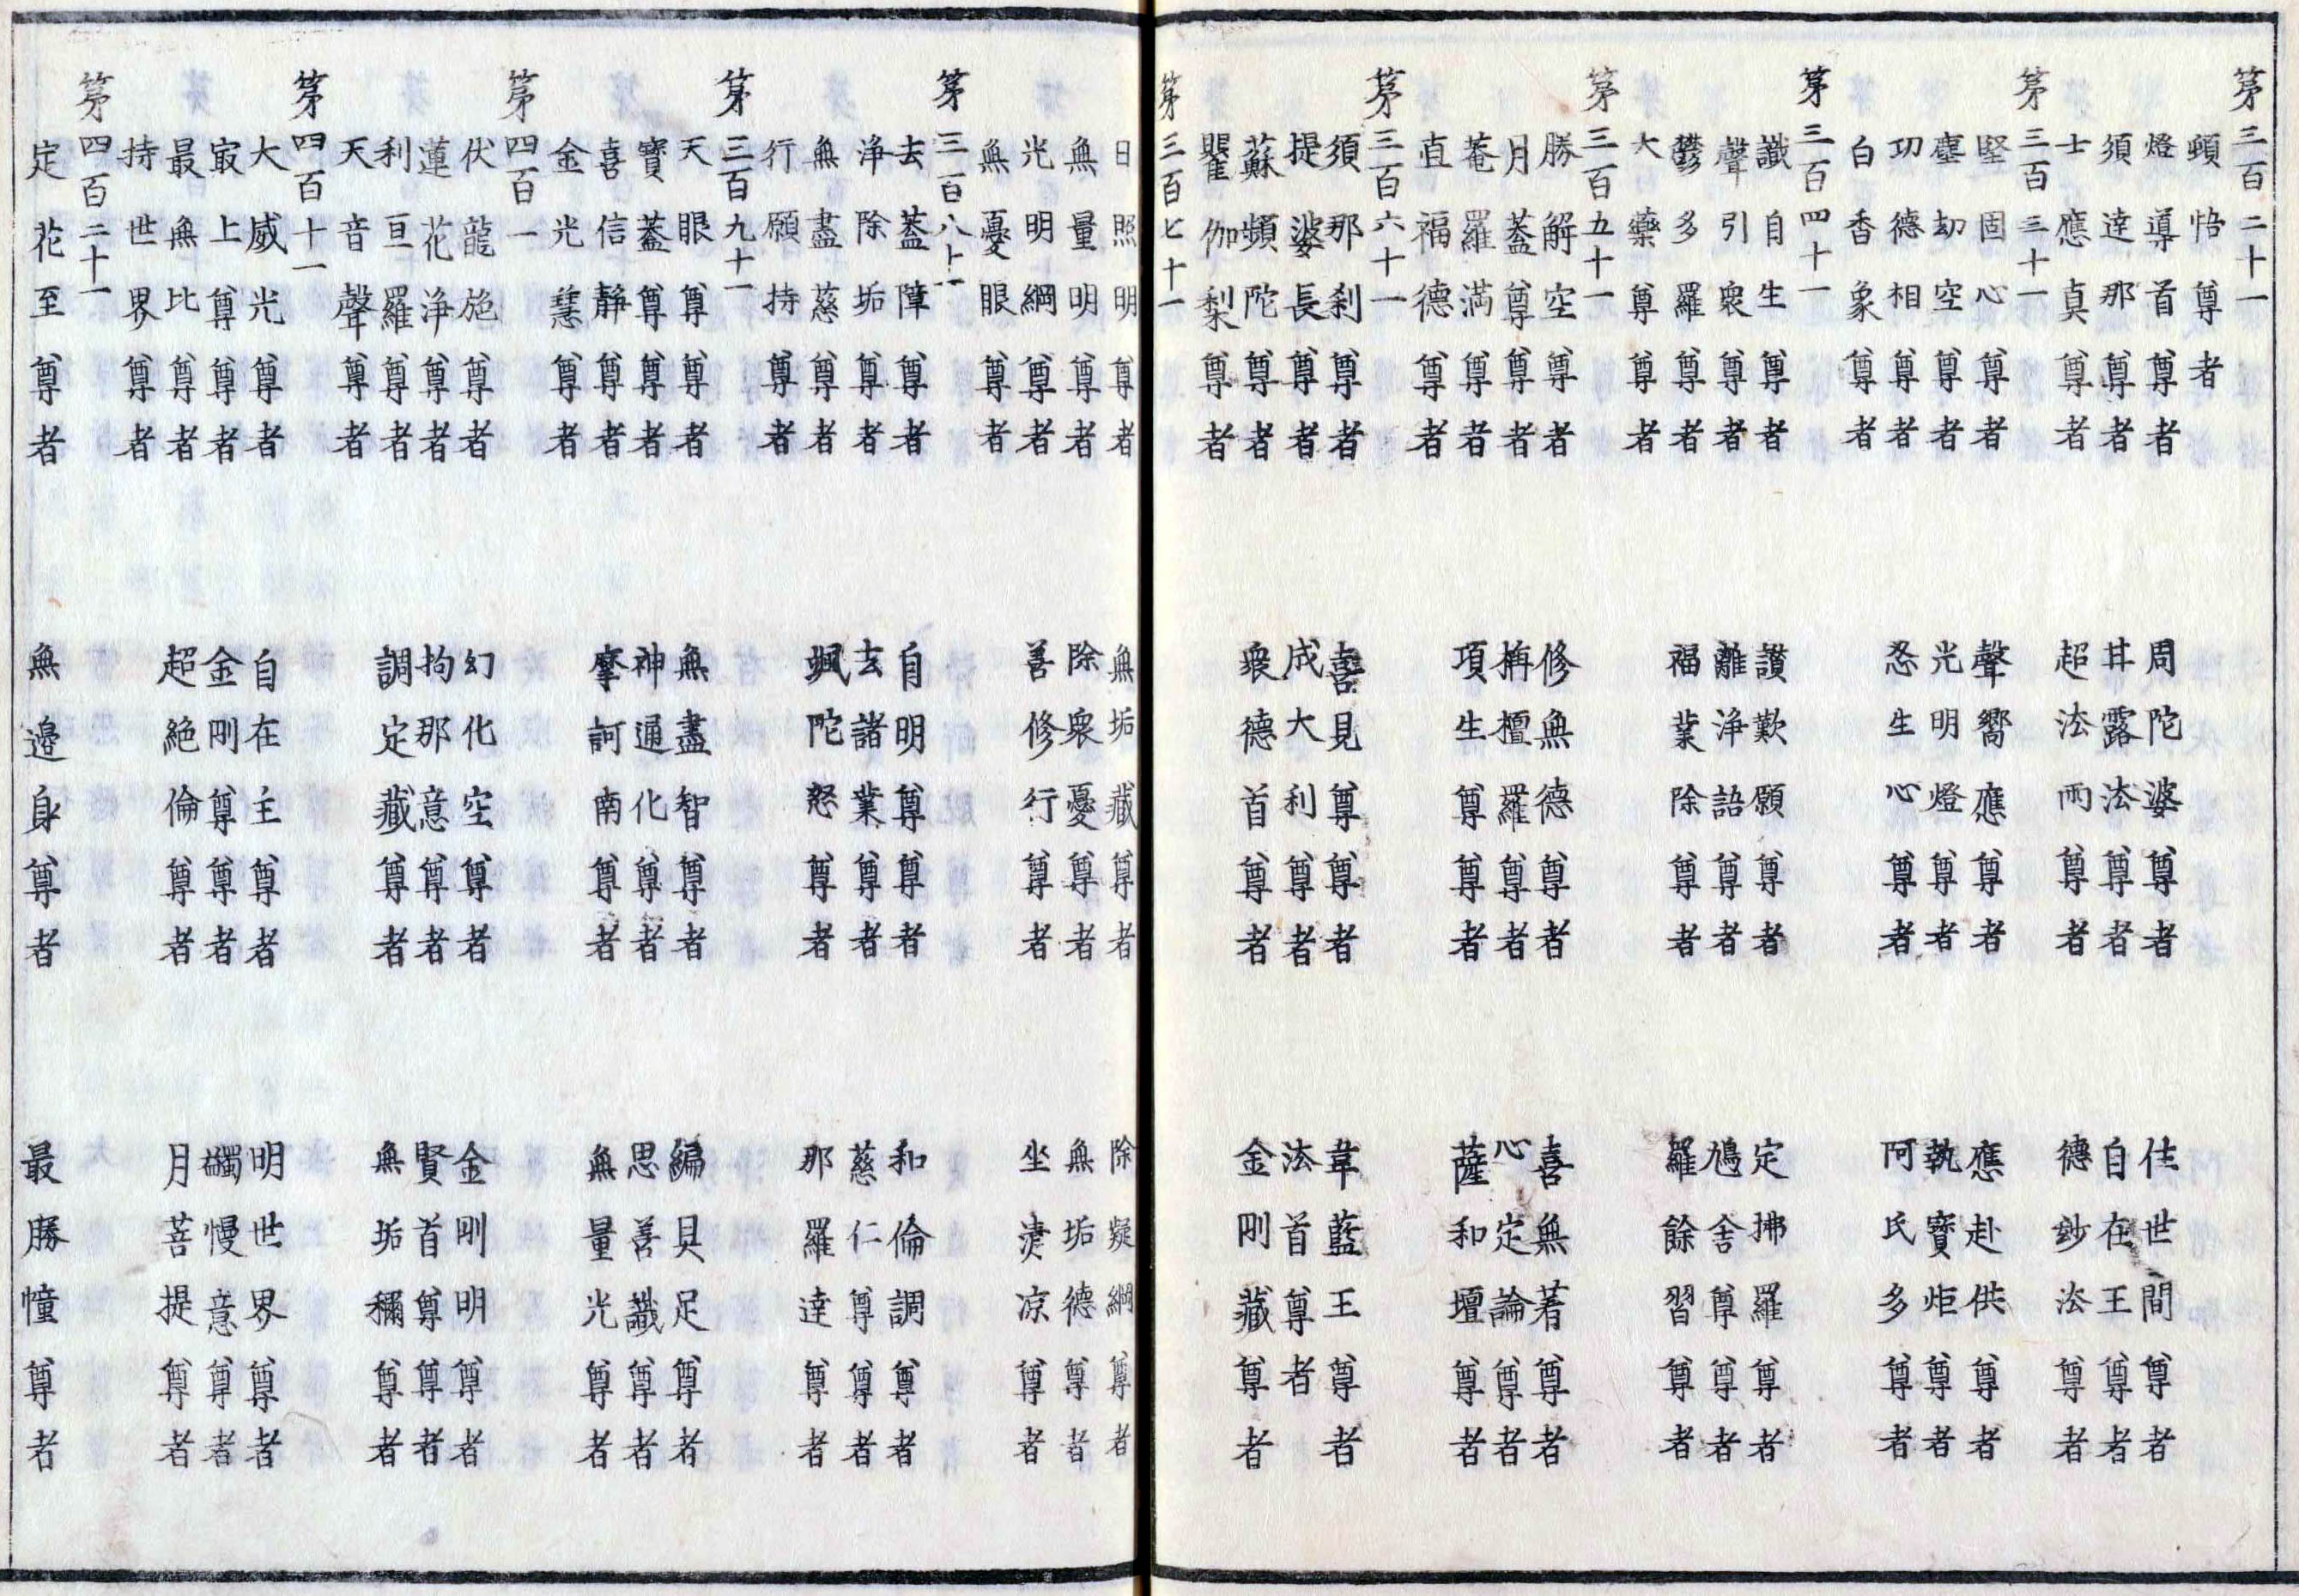 第三百二十一
頓悟尊者
燈導首尊者 周陀婆尊者 住世間尊者
須達那尊者 甘露法尊者 自在王尊者
士應真尊者 超法雨尊者 德妙法尊者
第三百三十一
堅固心尊者 聲嚮應尊者 應赴供尊者
塵劫空尊者 光明燈尊者 執寶炬尊者
功德相尊者 忍生心尊者 阿氏多尊者
白香象尊者
第三百四十一
識自生尊者 讚歎願尊者 定拂羅尊者
聲引衆尊者 離淨語尊者 鳩舍尊尊者
鬱多羅尊者 福業除尊者 羅餘習尊者
大藥尊尊者
第三百五十一
勝解空尊者 修無德尊者 喜無著尊者
月蓋尊尊者 栴檀羅尊者 心定論尊者
菴羅滿尊者 項生尊尊者 薩和壇尊者
直福德尊者
第三百六十一
須那刹尊者 喜見尊尊者 韋藍王尊者
提婆長尊者 成大利尊者 法首尊者
蘇頻陀尊者 衆德首尊者 金剛藏尊者
瞿伽梨尊者
第三百七十一
日照明尊者 無垢藏尊者 除疑網尊者
無量明尊者 除衆憂尊者 無垢德尊者
光明網尊者 善修行尊者 坐清凉尊者
無憂眼尊者
第三百八十一
去蓋障尊者 自明尊尊者 和倫調尊者
淨除垢尊者 去諸業尊者 慈仁尊尊者
無盡慈尊者 颯陀怒尊者 那羅達尊者
行願持尊者
第三百九十一
天眼尊尊者 無盡智尊者 編具足尊者
寶蓋尊尊者 神通化尊者 思善識尊者
喜信靜尊者 摩訶南尊者 無量光尊者
金光慧尊者
第四百一
伏龍施尊者 幻化空尊者 金剛明尊者
蓮花淨尊者 拘那意尊者 賢首尊尊者
利亘羅尊者 調定藏尊者 無垢稱尊者
天音聲尊者
第四百十一
大威光尊者 自在主尊者 明世界尊者
最上尊尊者 金剛尊尊者 蠲慢意尊者
最無比尊者 超絶倫尊者 月菩提尊者
持世界尊者
第四百二十一
定花至尊者 無邊身尊者 最勝幢尊者